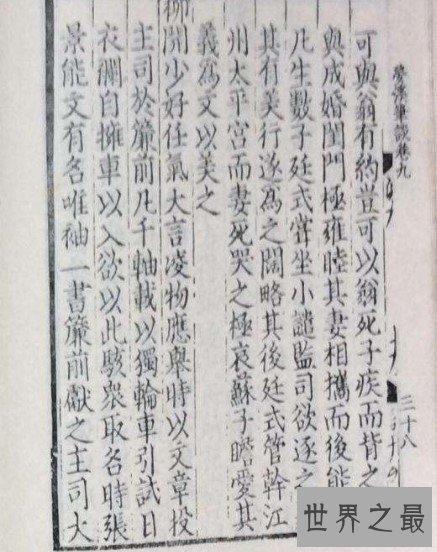 夢溪筆談卷九
三十八
可與翁有約豈可以翁死子疾而背之
與成婚閨門極雍睦其妻相攜而後能
凡生數子廷式嘗坐小譴監司欲逐之
其有美行遂為之闊略其後廷式管幹江
州太平宮而妻死哭之極哀蘇子瞻愛其
義為文以美之
柳開少好任氣大言凌物應舉時以文章投
主司於簾前凡千軸載以獨輪車引試日
衣襴自擁車以入欲以此駭衆取名時張
景能文有名唯袖一書簾前獻之主司大
世界之最